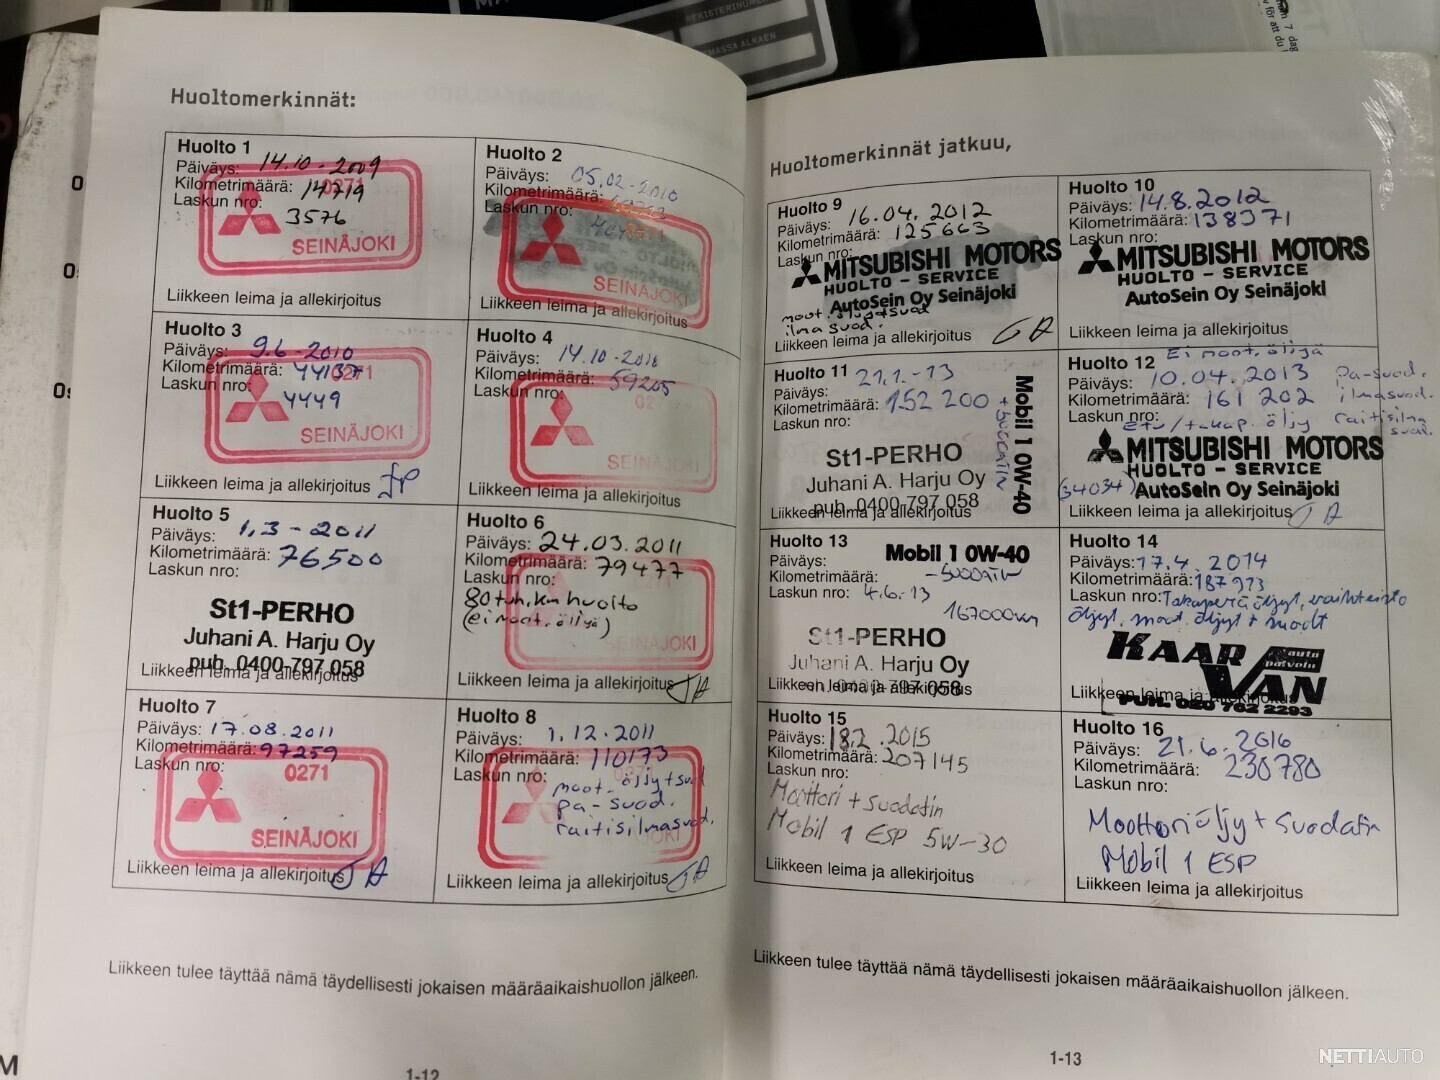 REKISTERINUM
MASSA ALKAEN
Huoltomerkinnät:
Huolto 1
Päiväys: 14.10-2009
Kilometrimäärä: 14719
Laskun nro:
3576
0271
SEINÄJOKI
Liikkeen leima ja allekirjoitus
Huolto 2
Päiväys: 05.02-2010
Kilometrimäärä:
Laskun nro:
SEINÄJOKI
Liikkeen leima ja allekirjoitus
Huolto 3
Päiväys: 9.6-2010
Kilometrimäärä: 44137
Laskun nro:
4449
0271
SEINÄJOKI
Liikkeen leima ja allekirjoitus
Huolto 4
Päiväys: 14.10-2010
Kilometrimäärä: 59205
Laskun nro:
SEINÄJOKI
Liikkeen leima ja allekirjoitus
Huolto 5
Päiväys: 1.3-2011
Kilometrimäärä: 76500
Laskun nro:
St1-PERHO
Juhani A. Harju Oy
puh. 0400-797 058
Liikkeen leima ja allekirjoitus
Huolto 6
Päiväys: 24.03.2011
Kilometrimäärä: 79477
Laskun nro:
0271
80 tuh.km huolto
(ei moot.öljyä)
SEINÄJOKI
Liikkeen leima ja allekirjoitus JA
Huolto 7
Päiväys: 17.08.2011
Kilometrimäärä: 97259
Laskun nro:
0271
SEINÄJOKI
Liikkeen leima ja allekirjoitus JA
Huolto 8
Päiväys: 1.12.2011
Kilometrimäärä: 110173
Laskun nro:
moot.öljy+suod
pa-suod.
raitisilmasuod.
Liikkeen leima ja allekirjoitus JA
Liikkeen tulee täyttää nämä täydellisesti jokaisen määräaikaishuollon jälkeen.
1-12
Huoltomerkinnät jatkuu,
Huolto 9
Päiväys: 16.04.2012
Kilometrimäärä: 125663
Laskun nro:
MITSUBISHI MOTORS
HUOLTO - SERVICE
AutoSein Oy Seinäjoki
moot.öljy+suod
ilmasuod.
Liikkeen leima ja allekirjoitus JA
Huolto 10
Päiväys: 14.8.2012
Kilometrimäärä: 138371
Laskun nro:
MITSUBISHI MOTORS
HUOLTO - SERVICE
AutoSein Oy Seinäjoki
Liikkeen leima ja allekirjoitus
Huolto 11
Päiväys: 21.1.-13
Kilometrimäärä: 152 200
Laskun nro:
Mobil 1 0W-40
St1-PERHO
Juhani A. Harju Oy
puh. 0400-797 058
Liikkeen leima ja allekirjoitus
Huolto 12 Ei moot.öljyä
Päiväys: 10.04.2013 Pa-suod.
Kilometrimäärä: 161 202 ilmasuod.
Laskun nro: raitisilma
Etu/takap. öljy suod.
MITSUBISHI MOTORS
HUOLTO - SERVICE
(34034) AutoSein Oy Seinäjoki
Liikkeen leima ja allekirjoitus JA
Huolto 13 Mobil 1 0W-40
Päiväys:
Kilometrimäärä:
Laskun nro: 4.6.13
167000km
St1-PERHO
Juhani A. Harju Oy
797 058
Liikkeen leima ja allekirjoitus
Huolto 14
Päiväys: 17.4.2014
Kilometrimäärä: 187973
Laskun nro: Takaperäöljyt, vaihteisto
öljyt, moot.öljyt + suodt
KAAR VAN
auto
palvelu
PUH. 020 762 2293
Liikkeen leima ja allekirjoitus
Huolto 15
Päiväys: 18.2.2015
Kilometrimäärä: 207145
Laskun nro:
Moottori + Suodatin
Mobil 1 ESP 5W-30
Liikkeen leima ja allekirjoitus
Huolto 16
Päiväys: 21.6.2016
Kilometrimäärä: 230780
Laskun nro:
Moottoriöljy + Suodatin
Mobil 1 ESP
Liikkeen leima ja allekirjoitus
Liikkeen tulee täyttää nämä täydellisesti jokaisen määräaikaishuollon jälkeen.
1-13
NETTIAUTO